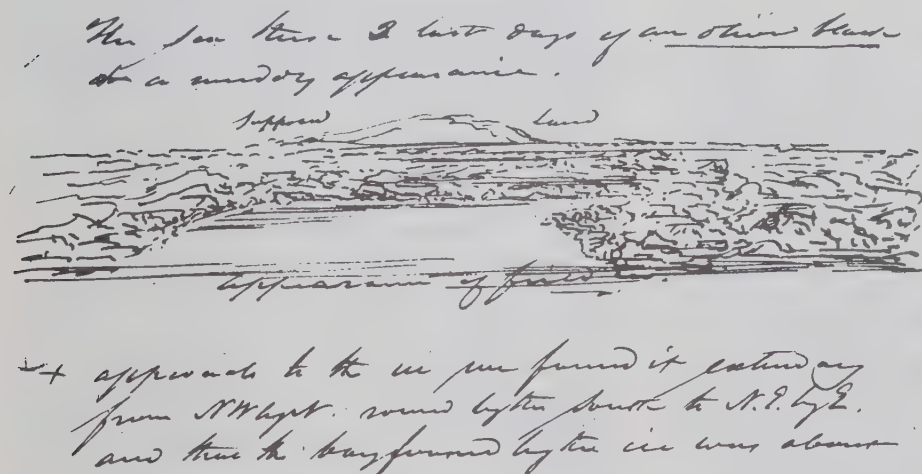 The Sea these 2 last days of an olive black
a muddy appearance.
supposed Land
appearance of
+ approach to the ice we found it extending
from NWbyN. round by the South to N.E. by E.
and that the bay formed by the ice was about